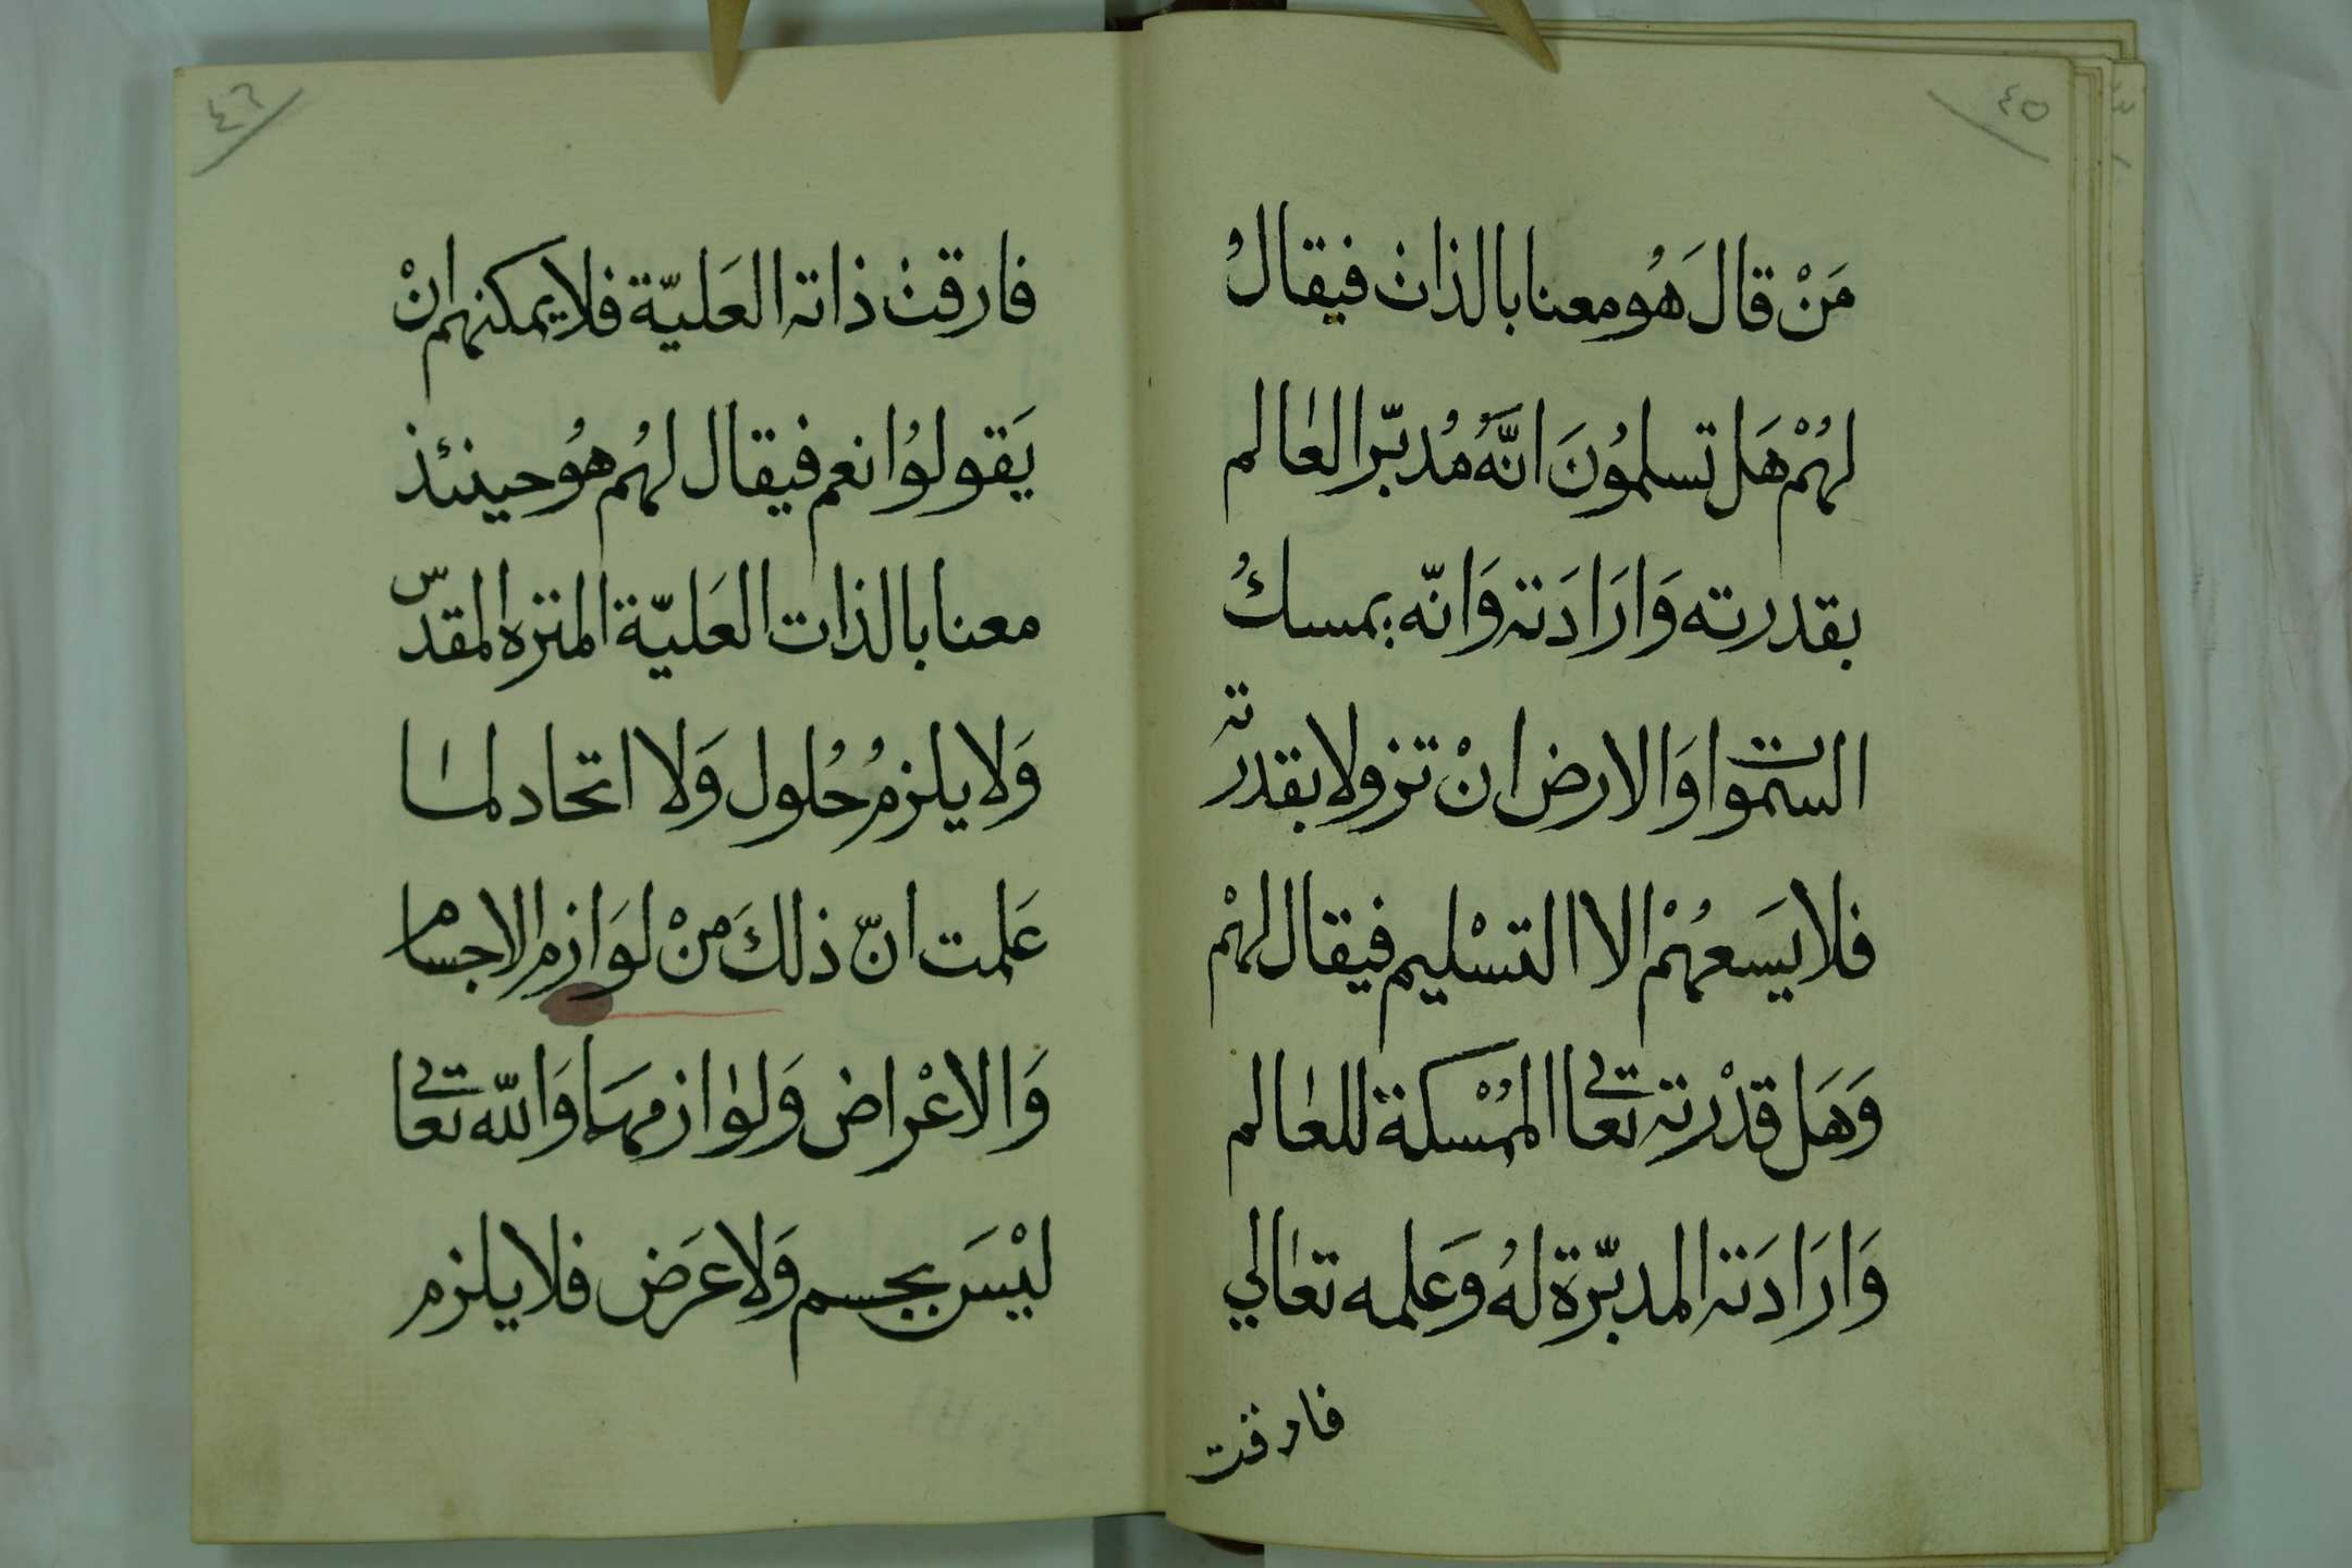 ٤٥
مَنْ قالَ هُو معنا بالذات فيقالُ
لهُمْ هَل تسلمُونَ انَّهُ مُدبّر العٰالم
بقدرته وَارَادَته وَانّه يمسكُ
السّمٰوات وَالارض انْ تزولا بقدرته
فلا يَسعهُمْ الا التسْليم فيقال لهمْ
وَهَل قدْرته تعالى المُمْسكة للعٰالم
وَارَادَته المدبّرة لهُ وَعلمه تعٰالي
فارقت
٤٦
فارقت ذاته العَليّة فلا يمكنهم انْ
يَقولوُا نعم فيقال لهُم هوُ حينئذ
معنا بالذات العَليّة المنزه المقدّس
وَلا يلزمُ حُلول وَلا اتحاد لمٰا
عَلمت انّ ذلكَ منْ لوَازم الاجسام
وَالاعْراض وَلوٰازمهَا وَالله تعالى
ليْسَ بجسم وَلا عرَض فلا يلزم